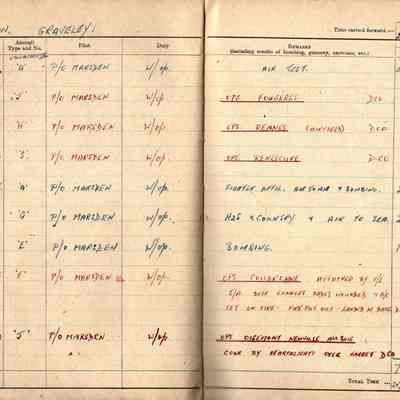 GRAVELEY.
Time carried forward:—
Aircraft
Type and No.
Pilot
Duty
REMARKS
(including results of bombing, gunnery, exercises, etc.)
'A' P/O MARSDEN W/OP. AIR TEST.
'J' P/O MARSDEN W/OP OPS FOUGERES DCO
'H' P/O MARSDEN W/OP OPS RENNES (AIRFIELD) DCO
'J' P/O MARSDEN W/OP OPS RENESCURE DCO
'A' P/O MARSDEN W/OP. FIGHTER AFFIL. AIR TO AIR & BOMBING.
'G' P/O MARSDEN W/OP. H2S X COUNTRY & AIR TO SEA.
'E' P/O MARSDEN W/OP. BOMBING.
'F' P/O MARSDEN W/OP. OPS ATTACKED BY
SET ON FIRE. FIRE PUT OUT
'J' P/O MARSDEN W/OP OPS OISEMONT NEUVILLE AU BOIS.
BY SEARCHLIGHTS OVER DCO
TOTAL TIME ...